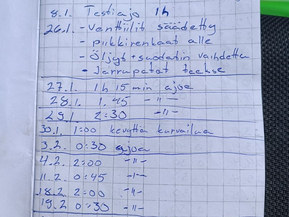 8.1. Testiajo 1h
26.1. - Venttiilit säädetty
- piikkirenkaat alle
- Öljyt + suodatin vaihdettu
- Jarrupalat
27.1. 1h 15 min ajoa
28.1. 1.45 -"-
29.1. 2:30 -"-
30.1. 1:00 kevyttä kurvailua
3.2. 0:30 ajoa
4.2. 2:00 -"-
11.2. 0:45 -"-
18.2. 2:00 -"-
19.2. 0:30 -"-